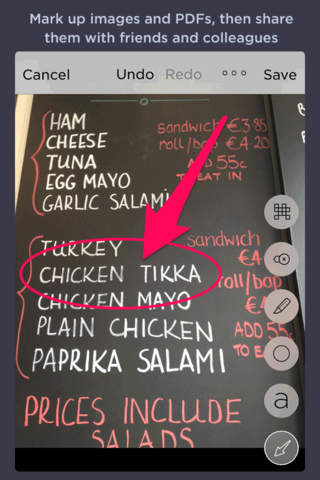 Mark up images and PDFs, then share
them with friends and colleagues
Cancel Undo Redo Save
HAM
CHEESE
TUNA
EGG MAYO
GARLIC SALAMI
sandwich €3.85
roll/bap €4.20
ADD 55c
TO EAT IN
TURKEY
CHICKEN TIKKA
CHICKEN MAYO
PLAIN CHICKEN
PAPRIKA SALAMI
sandwich
€4
roll/bap
€4
ADD 55
TO E
PRICES INCLUDE
SALADS
a